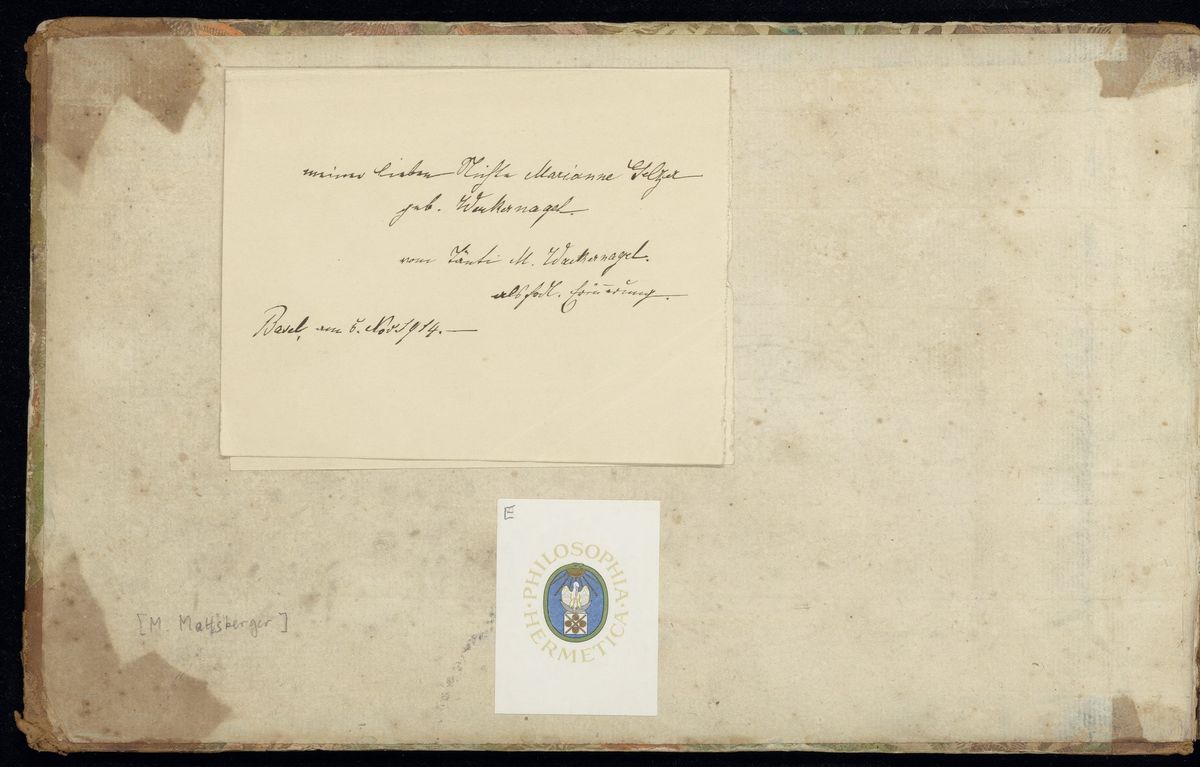 meiner lieben Nichte Marianne Gelzer
geb. Wackernagel
vom Tänti M. Wackernagel.
als frdl. Erinnerung.
Basel, am 6. Nov. 1914.—
E
PHILOSOPHIA · HERMETICA ·
[M. Mattsberger]